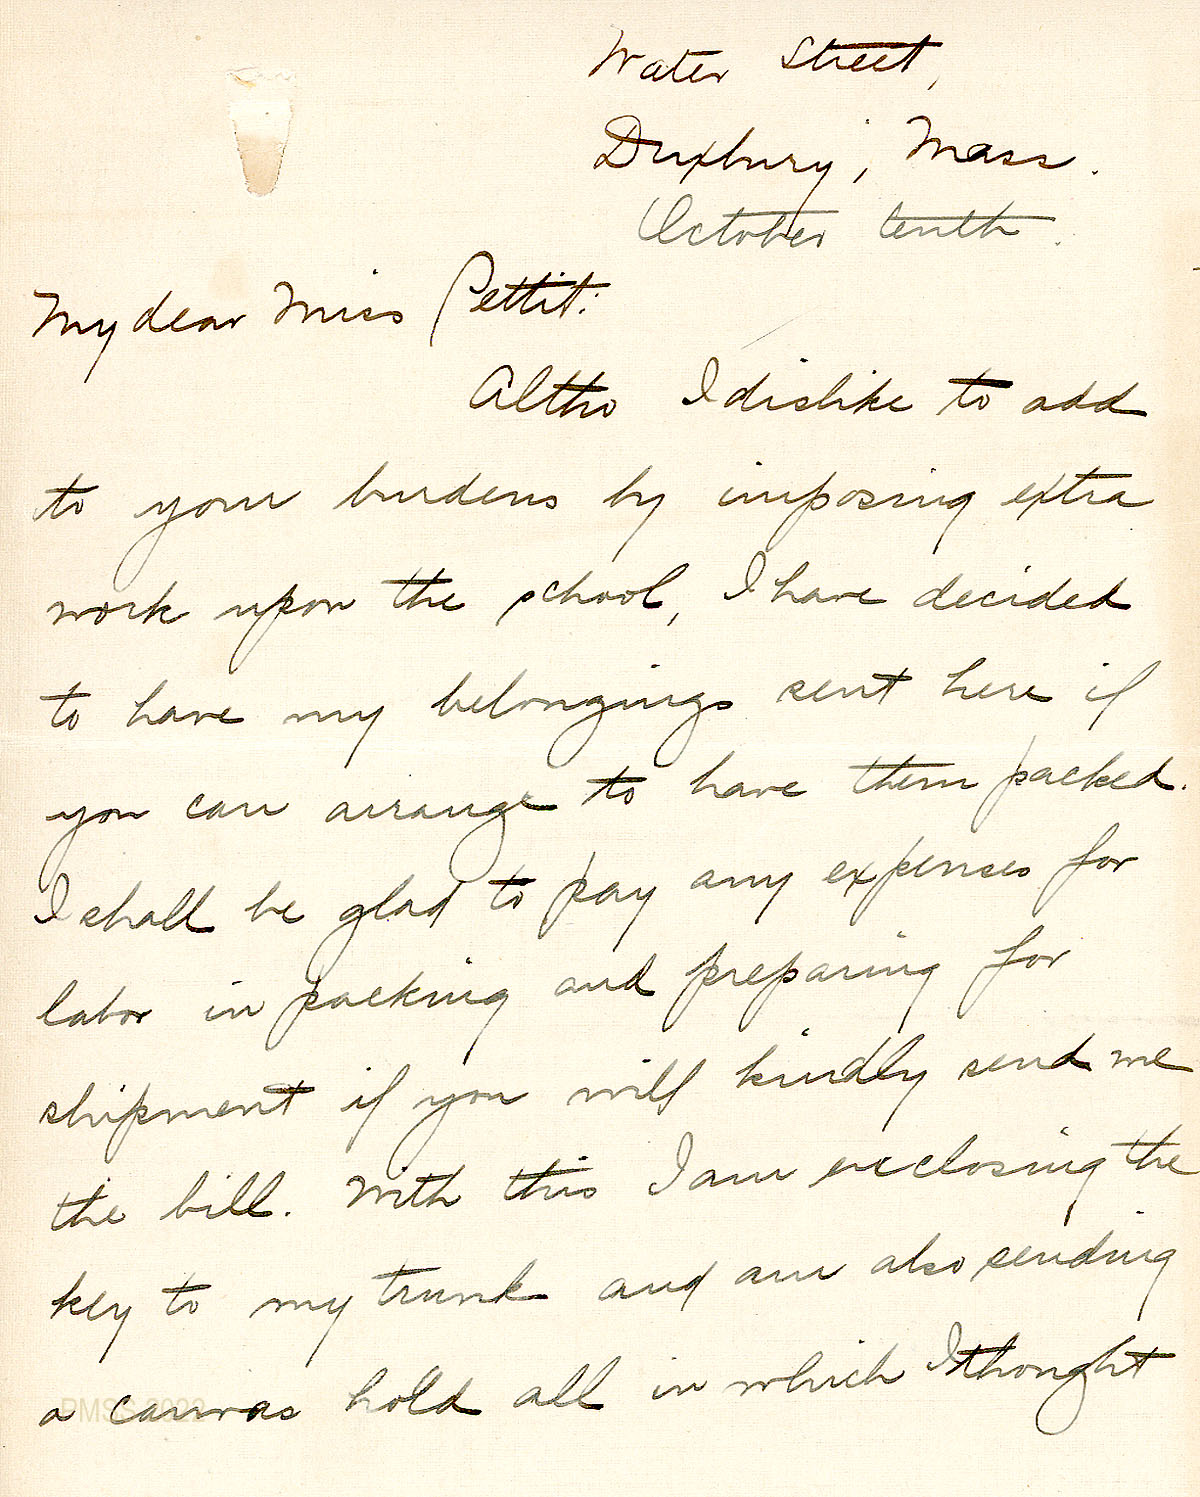 Water Street,
Duxbury, Mass.
October tenth.
My dear Miss Pettit:
Altho I dislike to add
to your burdens by imposing extra
work upon the school, I have decided
to have my belongings sent here if
you can arrange to have them packed.
I shall be glad to pay any expenses for
labor in packing and preparing for
shipment if you will kindly send me
the bill. With this I am enclosing the
key to my trunk and am also sending
a canvas hold all in which I thought
PMSS 2022